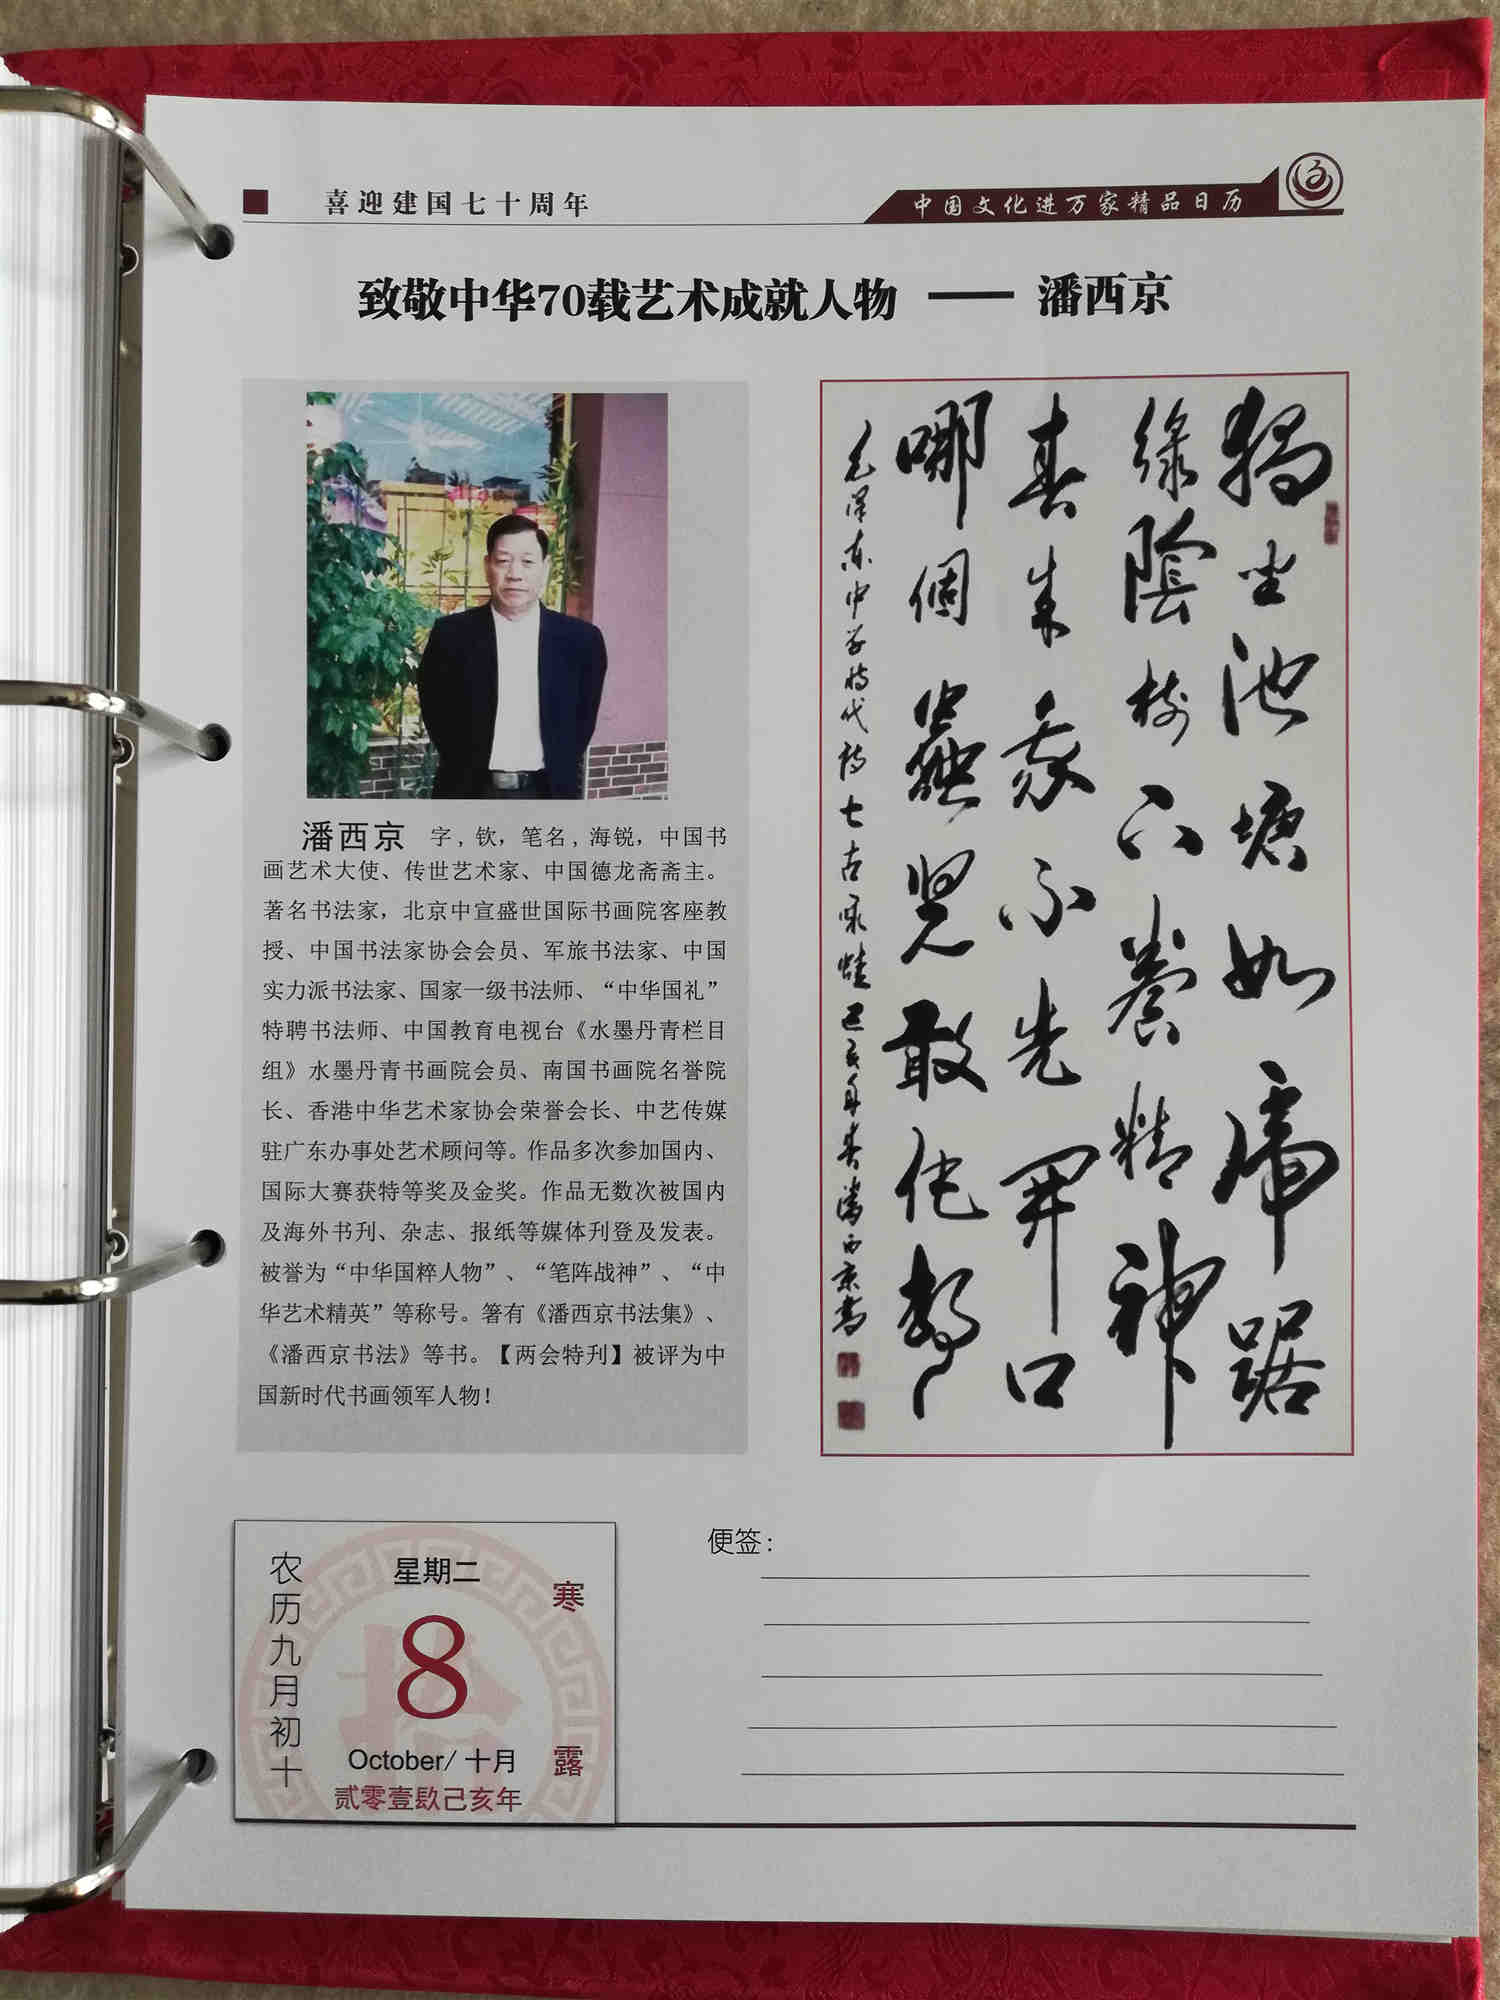 喜迎建国七十周年
中国文化进万家精品日历
致敬中华70载艺术成就人物 —— 潘西京
潘西京 字,钦,笔名,海锐,中国书
画艺术大使、传世艺术家、中国德龙斋斋主。
著名书法家,北京中宣盛世国际书画院客座教
授、中国书法家协会会员、军旅书法家、中国
实力派书法家、国家一级书法师、“中华国礼”
特聘书法师、中国教育电视台《水墨丹青栏目
组》水墨丹青书画院会员、南国书画院名誉院
长、香港中华艺术家协会荣誉会长、中艺传媒
驻广东办事处艺术顾问等。作品多次参加国内、
国际大赛获特等奖及金奖。作品无数次被国内
及海外书刊、杂志、报纸等媒体刊登及发表。
被誉为“中华国粹人物”、“笔阵战神”、“中
华艺术精英”等称号。箸有《潘西京书法集》、
《潘西京书法》等书。【两会特刊】被评为中
国新时代书画领军人物!
獨坐池塘如虎踞
綠陰樹下養精神
春來我不先開口
哪個蟲兒敢作聲
毛泽东中学时代诗七古咏蛙己亥年春潘西京书
农历九月初十
星期二
8
October/ 十月
贰零壹玖己亥年
寒露
便签: